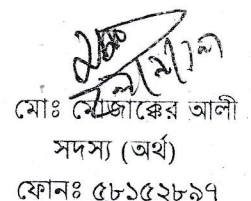 মোঃ মোজাক্কের আলী
সদস্য (অর্থ)
ফোনঃ ৫৮১৫২৮৯৭